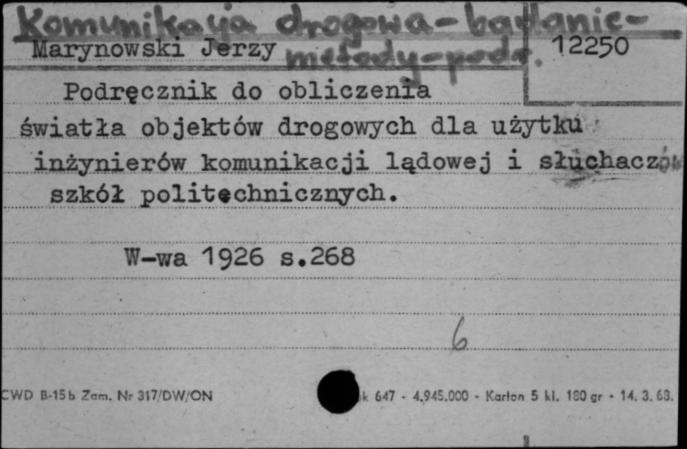 Komunikacja drogowa - badanie -
Marynowski Jerzy metody - podr. 12250
Podręcznik do obliczenia
światła objektów drogowych dla użytku
inżynierów komunikacji lądowej i słuchaczów
szkół politechnicznych.
W-wa 1926 s.268
6
CWD B-15b Zam. Nr 317/DW/ON k 647 - 4.945.000 - Karton 5 kl. 180 gr - 14. 3. 63.